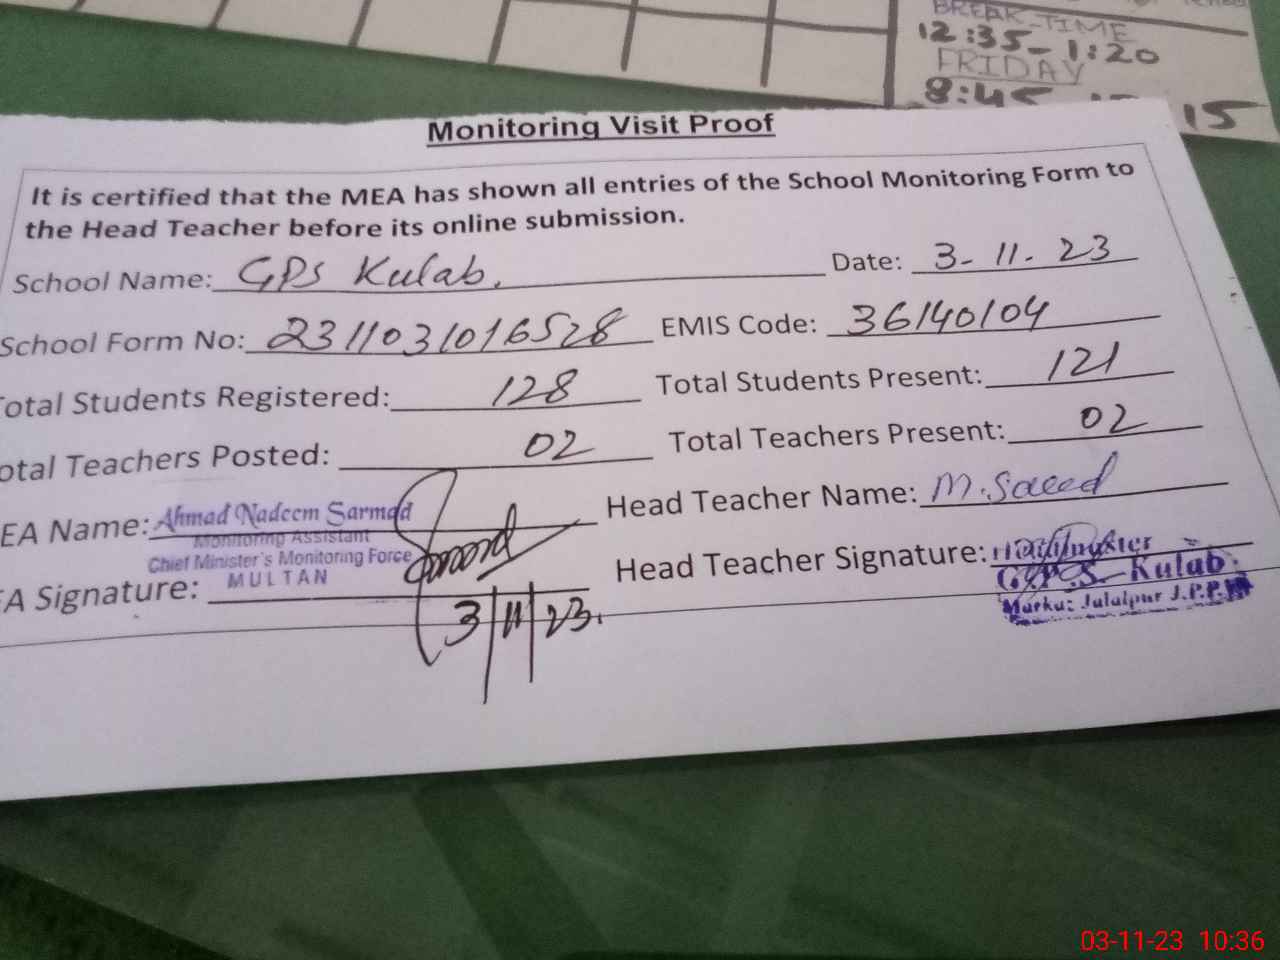 BREAK-TIME
12:35-1:20
FRIDAY
8:45 15
Monitoring Visit Proof
It is certified that the MEA has shown all entries of the School Monitoring Form to
the Head Teacher before its online submission.
School Name: GPS Kulab. Date: 3-11-23
School Form No: 2311031016528 EMIS Code: 36140104
Total Students Registered: 128 Total Students Present: 121
otal Teachers Posted: 02 Total Teachers Present: 02
EA Name: Ahmad Nadeem Sarmad Head Teacher Name: M.Saeed
Monitoring Assistant
Chief Minister's Monitoring Force
MULTAN
EA Signature: Head Teacher Signature: Headmaster
G.P.S. Kulab
Markaz Jalalpur J.P.P.W
3/11/23.
03-11-23 10:36